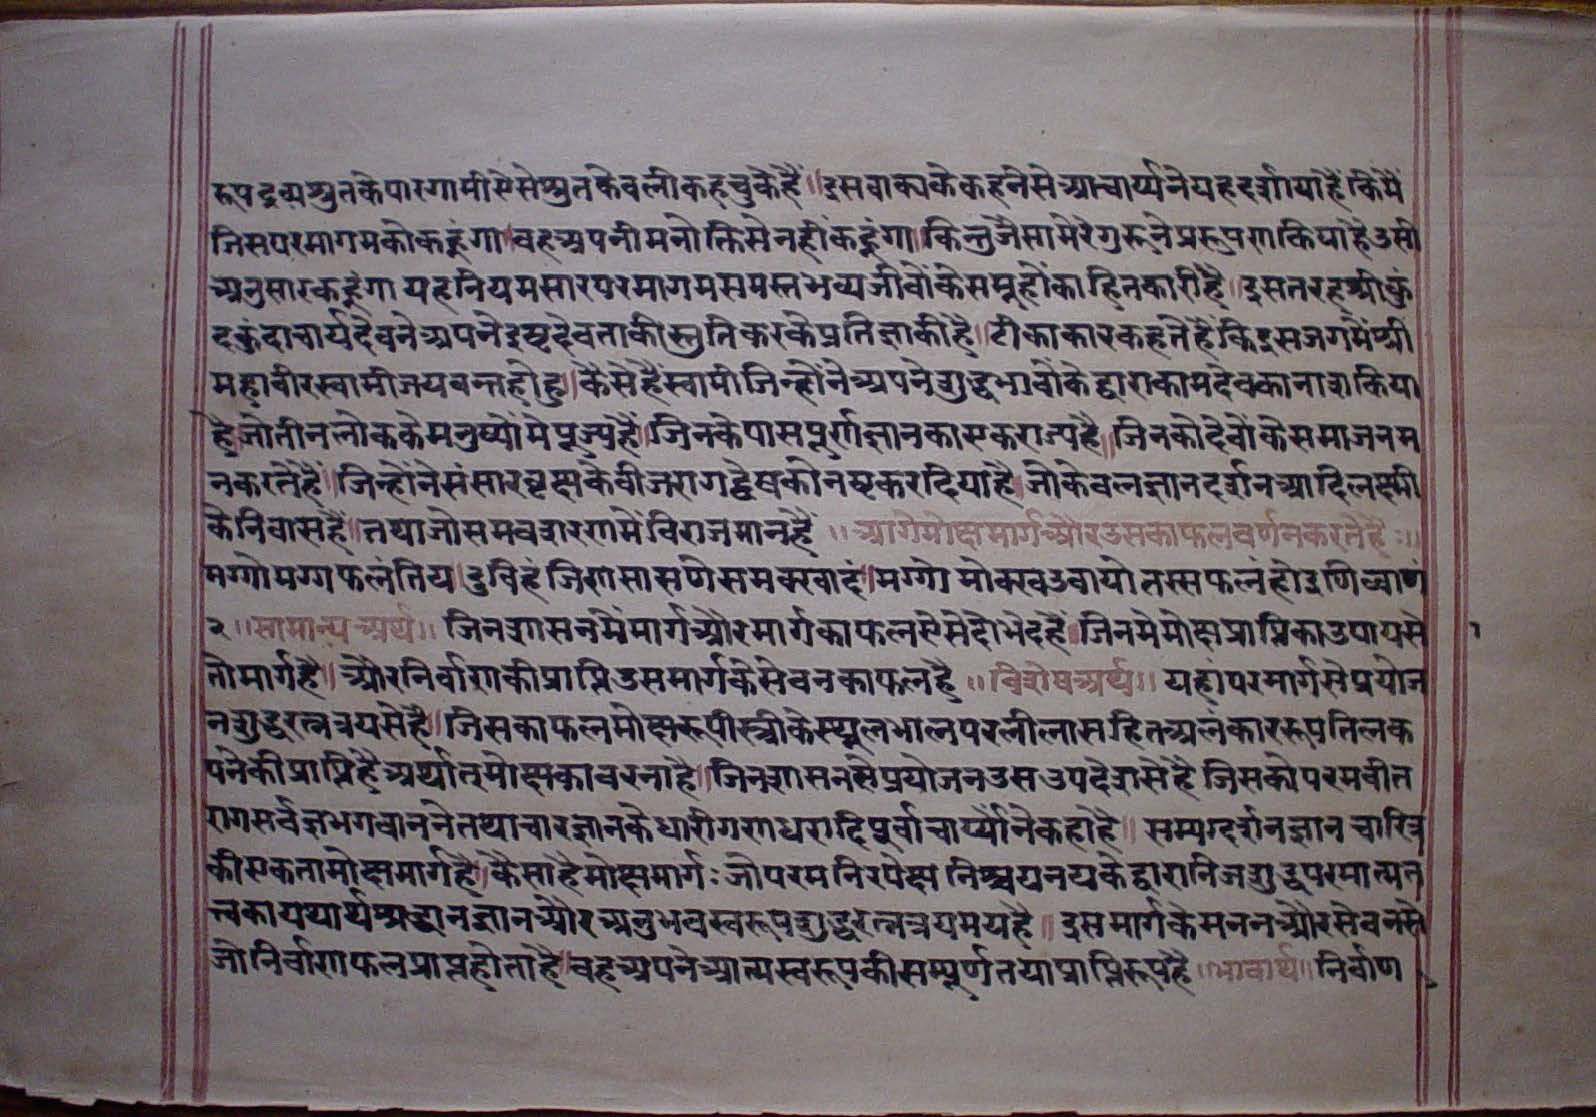 रूपद्रव्यश्रुतकेपारगामीऐसेश्रुतकेवलीकहचुकेहैं॥इसवाक्यकेकहनेसेआचार्य्यनेयहदर्शायाहैकिमैं
जिसपरमागमकोकहूंगा॥वहअपनीमनोक्तिसेनहींकहूंगा।किन्तुजैसामेरेगुरूनेप्ररूपणकियाहैउसी
अनुसारकहूंगा यहनियमसारपरमागमसमस्तभव्यजीवोंकेसमूहोंकाहितकारीहै॥इसतरहश्रीकुं
दकुंदाचार्यदेवनेअपनेइष्टदेवताकीस्तुतिकरकेप्रतिज्ञाकीहै॥टीकाकारकहतेहैंकिइसजगमेंश्री
महावीरस्वामीजयवन्तहोहु॥कैसेहैंस्वामीजिन्होंनेअपनेशुद्धभावोंकेद्वाराकामदेवकानाशकिया
है।जोतीनलोककेमनुष्योंमेंपूज्यहैं॥जिनकेपासपूर्णज्ञानकाएकराज्यहै॥जिनकोदेवोंकेसमाजनम
नकरतेहैं॥जिन्होंनेसंसारवृक्षकेबीजरागद्वेषकोनष्टकरदियाहै।जोकेवलज्ञानदर्शनआदिलक्ष्मी
केनिवासहैं॥तथाजोसमवशरणमेंविराजमानहैं ॥आगेमोक्षमार्गऔरउसकाफलवर्णनकरतेहैं:॥
मग्गोमग्गफलंतिय।दुविहंजिणसासणेसमक्खादं॥मग्गो मोक्खउवायो तस्सफलंहोइणिव्वाण
२॥सामान्यअर्थ॥ जिनशासनमेंमार्गऔरमार्गकाफलऐसेदोभेदहैं॥जिनमेमोक्षप्राप्तिकाउपायसे
तोमार्गहै॥औरनिर्वाणकीप्राप्तिउसमार्गकेसेवनकाफलहै ॥विशेषअर्थ॥ यहांपरमार्गसेप्रयोज
नशुद्धरत्नत्रयसेहै॥जिसकाफलमोक्षरूपीस्त्रीकेस्थूलभालपरलीलासहितअलंकाररूपतिलक
पनेकीप्राप्तिहैअर्थातमोक्षकावरनाहै॥जिनशासनसेप्रयोजनउसउपदेशसेहै जिसकोपरमवीत
रागसर्वज्ञभगवाननेतथाचारज्ञानकेधारीगणधरादिपूर्वाचार्य्योंनेकहाहै॥ सम्यग्दर्शनज्ञानचारित्र
कीएकतामोक्षमार्गहै॥कैसाहैमोक्षमार्ग:जोपरमनिरपेक्ष निश्चयनयकेद्वारानिजशुद्धपरमात्मत
त्त्वकायथार्थश्रद्धानज्ञानऔरअनुभवस्वरूपशुद्धरत्नत्रयमयहै॥इसमार्गकेमननऔरसेवनसे
जोनिर्वाणफलप्राप्तहोताहै॥वहअपनेआत्मस्वरूपकीसम्पूर्णतयाप्राप्तिरूपहै॥भावार्थ॥निर्वाण